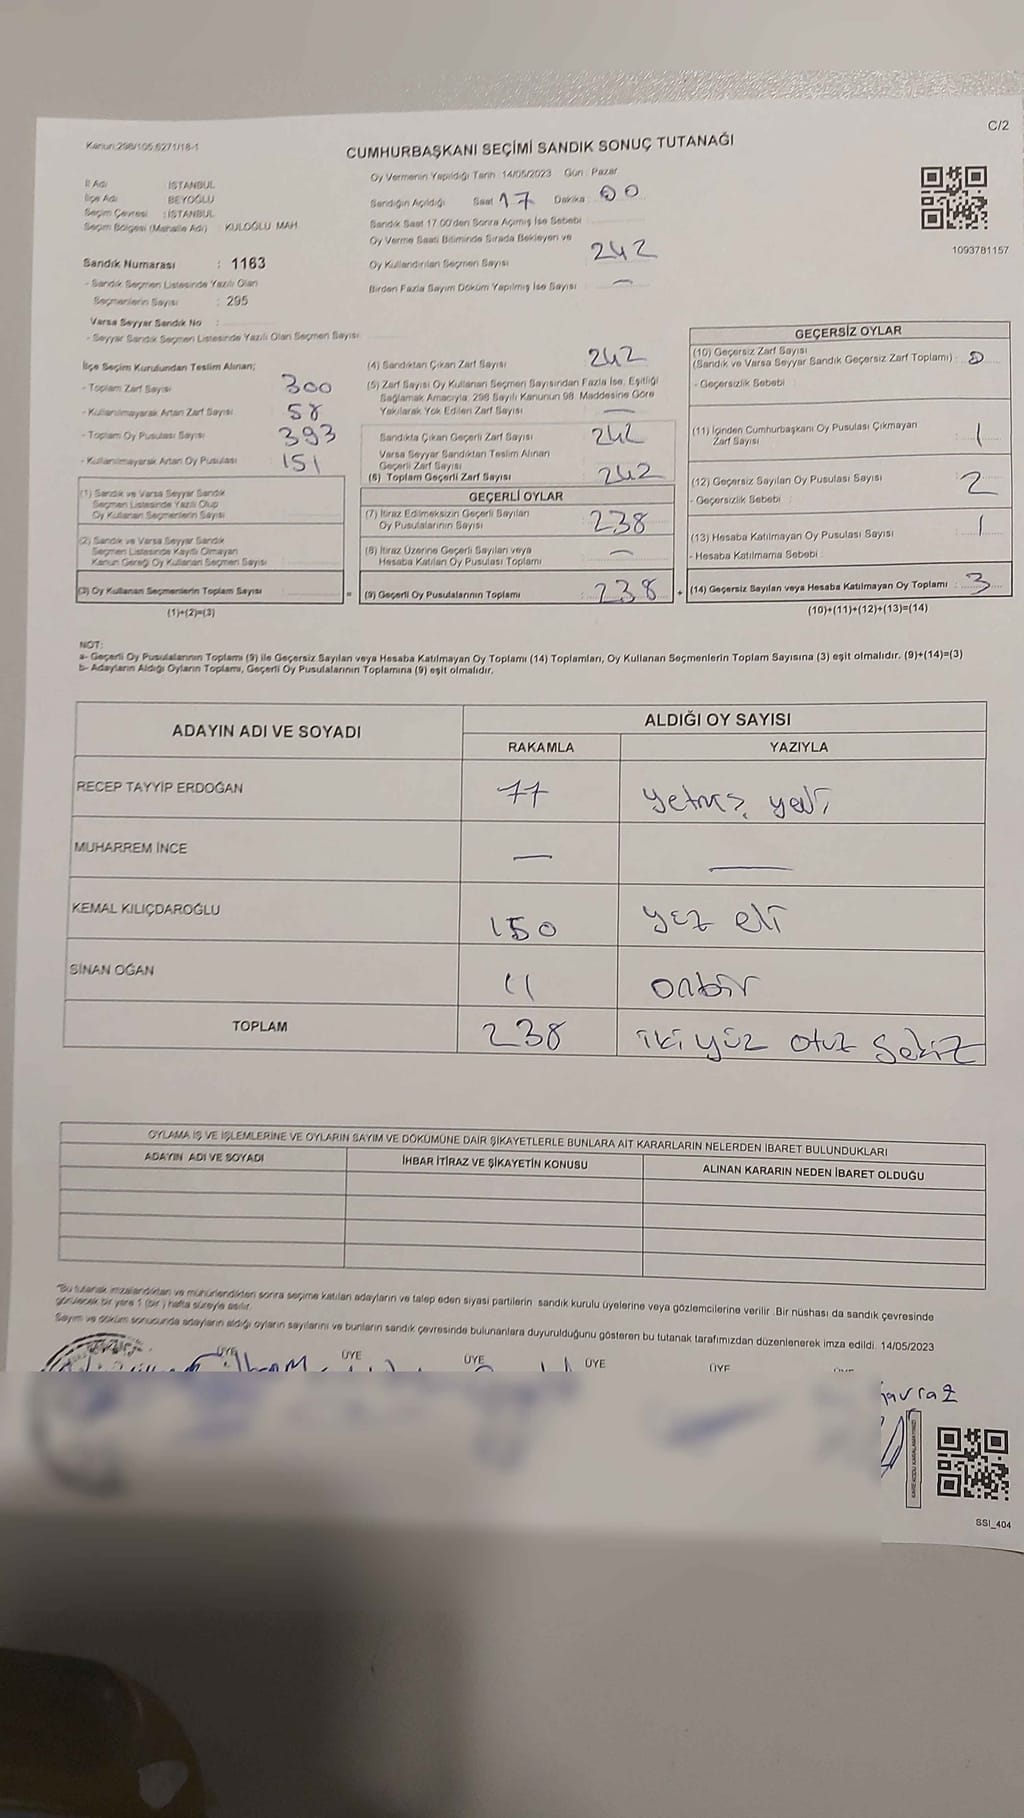 C/2
Kanun:298/105,6271/18-1
CUMHURBAŞKANI SEÇİMİ SANDIK SONUÇ TUTANAĞI
İl Adı : İSTANBUL
İlçe Adı : BEYOĞLU
Seçim Çevresi : İSTANBUL
Seçim Bölgesi (Mahalle Adı) : KULOĞLU MAH.
Sandık Numarası : 1163
- Sandık Seçmen Listesinde Yazılı Olan
Seçmenlerin Sayısı : 295
Varsa Seyyar Sandık No :
- Seyyar Sandık Seçmen Listesinde Yazılı Olan Seçmen Sayısı
Oy Vermenin Yapıldığı Tarih :14/05/2023 Gün : Pazar
Sandığın Açıldığı Saat 17 Dakika : 00
Sandık Saat 17.00'den Sonra Açımış İse Sebebi :
Oy Verme Saati Bitiminde Sırada Bekleyen ve
Oy Kullandırılan Seçmen Sayısı : 242
Birden Fazla Sayım Döküm Yapılmış İse Sayısı : —
1093781157
İlçe Seçim Kurulundan Teslim Alınan;
- Toplam Zarf Sayısı : 300
- Kullanılmayarak Artan Zarf Sayısı : 58
- Toplam Oy Pusulası Sayısı : 393
- Kullanılmayarak Artan Oy Pusulası : 151
(1) Sandık ve Varsa Seyyar Sandık
Seçmen Listesinde Yazılı Olup
Oy Kullanan Seçmenlerin Sayısı
(2) Sandık ve Varsa Seyyar Sandık
Seçmen Listesinde Kayıtlı Olmayan
Kanun Gereği Oy Kullanan Seçmen Sayısı
(3) Oy Kullanan Seçmenlerin Toplam Sayısı
=
(1)+(2)=(3)
(4) Sandıktan Çıkan Zarf Sayısı : 242
(5) Zarf Sayısı Oy Kullanan Seçmen Sayısından Fazla İse, Eşitliği
Sağlamak Amacıyla; 298 Sayılı Kanunun 98. Maddesine Göre
Yakılarak Yok Edilen Zarf Sayısı : —
Sandıkta Çıkan Geçerli Zarf Sayısı : 242
Varsa Seyyar Sandıktan Teslim Alınan
Geçerli Zarf Sayısı
(6) Toplam Geçerli Zarf Sayısı : 242
GEÇERLİ OYLAR
(7) İtiraz Edilmeksizin Geçerli Sayılan
Oy Pusulalarının Sayısı : 238
(8) İtiraz Üzerine Geçerli Sayılan veya
Hesaba Katılan Oy Pusulası Toplamı : —
(9) Geçerli Oy Pusulalarının Toplamı : 238
+
GEÇERSİZ OYLAR
(10) Geçersiz Zarf Sayısı
(Sandık ve Varsa Seyyar Sandık Geçersiz Zarf Toplamı) : 0
- Geçersizlik Sebebi :
(11) İçinden Cumhurbaşkanı Oy Pusulası Çıkmayan
Zarf Sayısı : 1
(12) Geçersiz Sayılan Oy Pusulası Sayısı : 2
- Geçersizlik Sebebi :
(13) Hesaba Katılmayan Oy Pusulası Sayısı : 1
- Hesaba Katılmama Sebebi :
(14) Geçersiz Sayılan veya Hesaba Katılmayan Oy Toplamı : 3
(10)+(11)+(12)+(13)=(14)
NOT:
a- Geçerli Oy Pusulalarının Toplamı (9) ile Geçersiz Sayılan veya Hesaba Katılmayan Oy Toplamı (14) Toplamları, Oy Kullanan Seçmenlerin Toplam Sayısına (3) eşit olmalıdır. (9)+(14)=(3)
b- Adayların Aldığı Oyların Toplamı, Geçerli Oy Pusulalarının Toplamına (9) eşit olmalıdır.
ADAYIN ADI VE SOYADI
ALDIĞI OY SAYISI
RAKAMLA YAZIYLA
RECEP TAYYİP ERDOĞAN 77 yetmiş yedi
MUHARREM İNCE — —
KEMAL KILIÇDAROĞLU 150 yüz elli
SİNAN OĞAN 11 onbir
TOPLAM 238 iki yüz otuz sekiz
OYLAMA İŞ VE İŞLEMLERİNE VE OYLARIN SAYIM VE DÖKÜMÜNE DAİR ŞİKAYETLERLE BUNLARA AİT KARARLARIN NELERDEN İBARET BULUNDUKLARI
ADAYIN ADI VE SOYADI İHBAR İTİRAZ VE ŞİKAYETİN KONUSU ALINAN KARARIN NEDEN İBARET OLDUĞU
"Bu tutanak imzalandıktan ve mühürlendikten sonra seçime katılan adayların ve talep eden siyasi partilerin sandık kurulu üyelerine veya gözlemcilerine verilir. Bir nüshası da sandık çevresinde
görülecek bir yere 1 (bir) hafta süreyle asılır.
Sayım ve döküm sonucunda adayların aldığı oyların sayılarını ve bunların sandık çevresinde bulunanlara duyurulduğunu gösteren bu tutanak tarafımızdan düzenlenerek imza edildi. 14/05/2023
ÜYE ÜYE ÜYE ÜYE ÜYE
SSI_404